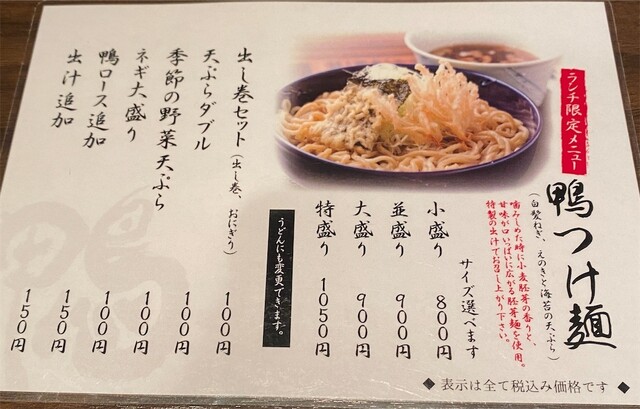 ランチ限定メニュー
鴨つけ麺
(白髪ねぎ、えのきと海苔の天ぷら)
噛みしめた時に小麦胚芽の香りと、
甘味が口いっぱいに広がる胚芽麺を使用。
特製の出汁でお召し上がり下さい。
サイズ選べます
小盛り 800円
並盛り 900円
大盛り 900円
特盛り 1050円
うどんにも変更できます。
出し巻セット(出し巻、おにぎり) 100円
天ぷらダブル 100円
季節の野菜天ぷら 100円
ネギ大盛り 100円
鴨ロース追加 150円
出汁追加 150円
鴨
◆ 表示は全て税込み価格です ◆